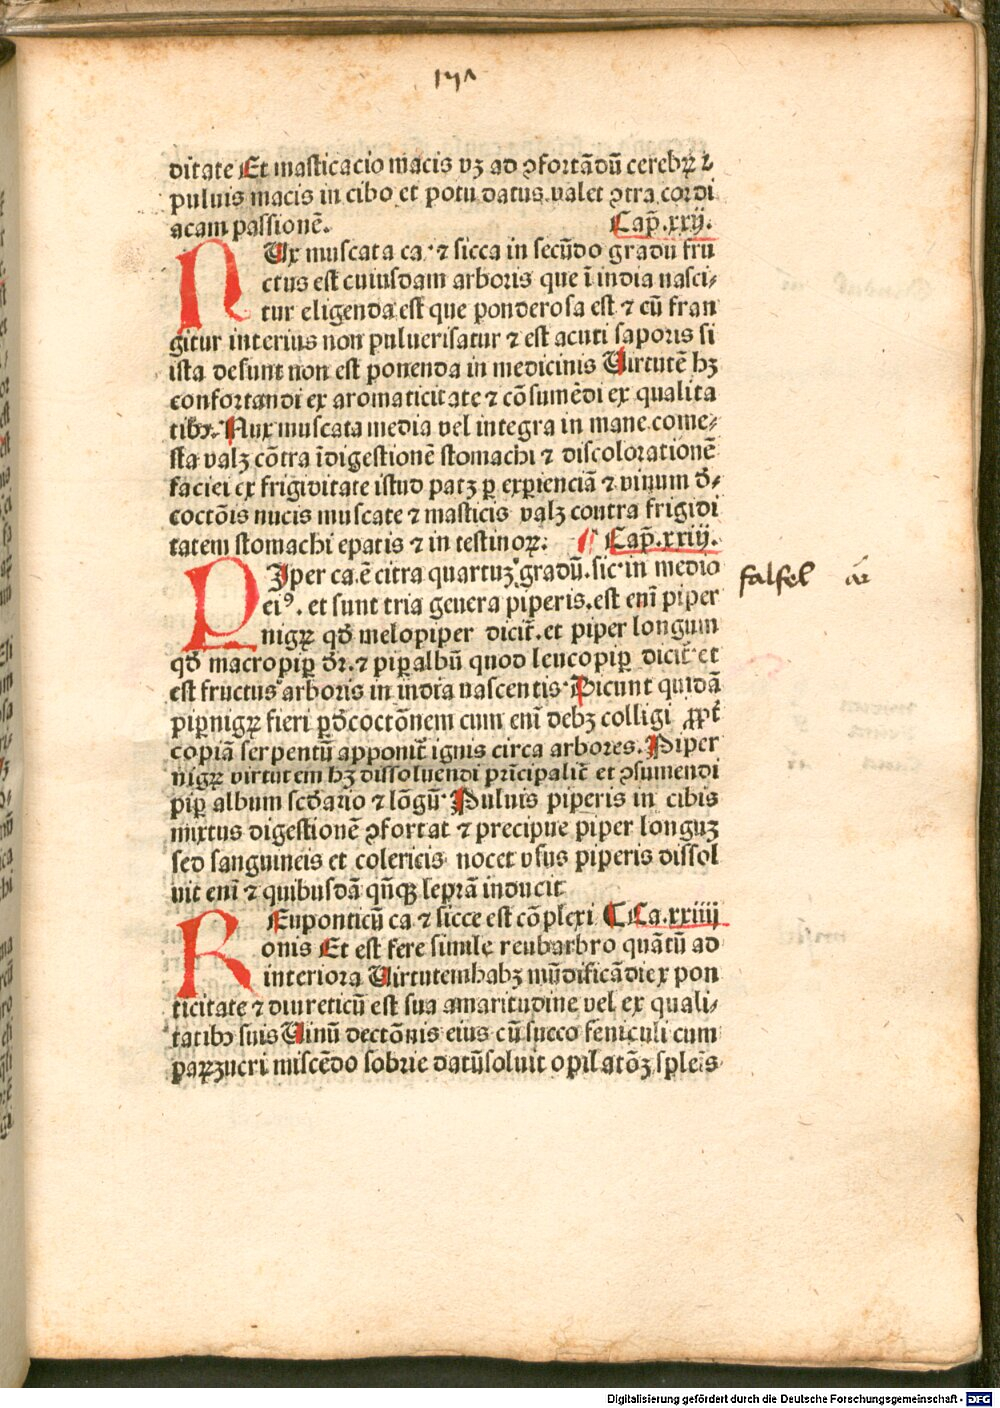 171
ditate Et masticacio macis vꝫ ad ꝯfortãdũ cerebꝝ ⁊
puluis macis in cibo et potu datus valet ꝯtra cordi
acam passionẽ. Cap̃. xxij.
NUx muscata ca. ⁊ sicca in secũdo gradu fru
ctus est cuiusdam arboris que ĩ india nasci⸗
tur eligenda est que ponderosa est ⁊ cũ fran
gitur interius non puluerisatur ⁊ est acuti saporis si
ista desunt non est ponenda in medicinis Uirtutẽ hꝫ
confortandi ex aromaticitate ⁊ cõsumẽdi ex qualita
tibꝰ. Nux muscata media vel integra in mane come⸗
sta valꝫ cõtra ĩdigestionẽ stomachi ⁊ discolorationẽ
faciei ex frigiditate istud patꝫ ꝑ exꝑienciã ⁊ vinum d̃⸗
coctõis nucis muscate ⁊ masticis valꝫ contra frigidi
tatem stomachi epatis ⁊ in testinoꝝ: Cap̃. xxiij.
PIper ca. ẽ citra quartuꝫ gradũ. sic in medio
eiꝰ. et sunt tria genera piperis. est enĩ piper
nigꝝ qd̃ melopiper dicit̃. et piper longum
qd̃ macropiꝑ dr̃. ⁊ piꝑ albũ quod leucopiꝑ dicit̃ et
est fructus arboris in india nascentis Dicunt quidã
piꝑnigꝝ fieri ꝑd̃coctõnem cum enĩ debꝫ colligi ꝓpt̃
copiã serpentũ apponit̃ ignis circa arbores. Piper
nigꝝ virtutem hꝫ dissoluendi prĩcipalit̃ et ꝯsumendi
piꝑ album scd̃ario ⁊ lõgũ Puluis piperis in cibis
mixtus digestionẽ ꝯfortat ⁊ precipue piper longuꝫ
sed sanguineis et colericis nocet vsus piperis dissol
uit enĩ ⁊ quibusdã qñqꝫ leprã inducit
REuponticũ ca ⁊ sicce est cõplexi ¶ Ca. xxiiij
onis Et est fere simile reubarbro quãtũ ad
interiora Uirtutem habꝫ mũdificãdi ex pon
ticitate ⁊ diureticũ est sua amaritudine vel ex quali⸗
tatibꝰ suis Uinũ dectõnis eius cũ succo feniculi cum
paꝝ zucri miscẽdo sobrie datũ soluit opilatõꝫ spleĩs
falfel ar